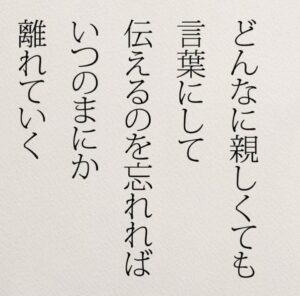 どんなに親しくても
言葉にして
伝えるのを忘れれば
いつのまにか
離れていく